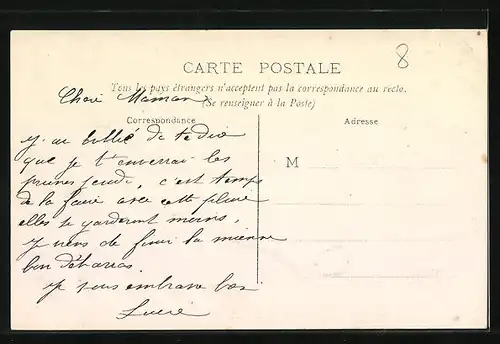 8
CARTE POSTALE
Tous les pays étrangers n'acceptent pas la correspondance au recto.
(Se renseigner à la Poste)
Chere Maman
Correspondance
Adresse
J'ai oublié de te dire
que je t'enverrai les
prunes jeudi, c'est temps
de la faire avec cette pluie
elles se garderont moins,
Je viens de finir la mienne
bon débarras.
Je vous embrasse bas
Lucie
M